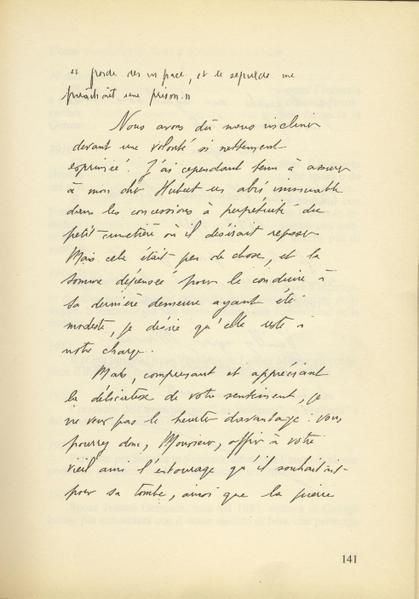 froide des in pace, et le sépulcre me
paraîtrait une prison."
Nous avons dû nous incliner
devant une volonté si nettement
exprimée. J'ai cependant tenu à assurer
à mon cher Hubert un abri immuable
dans les concessions à perpétuité du
petit cimetière où il désirait reposer
Mais cela était peu de chose, et la
somme dépensée pour le conduire à
sa dernière demeure ayant été
modeste, je désire qu'elle reste à
notre charge.
Mais, comprenant et appréciant
la délicatesse de votre sentiment, je
ne veux pas le heurter davantage : vous
pourrez donc, Monsieur, offrir à votre
vieil ami l'entourage qu'il souhaitait
pour sa tombe, ainsi que la pierre
141